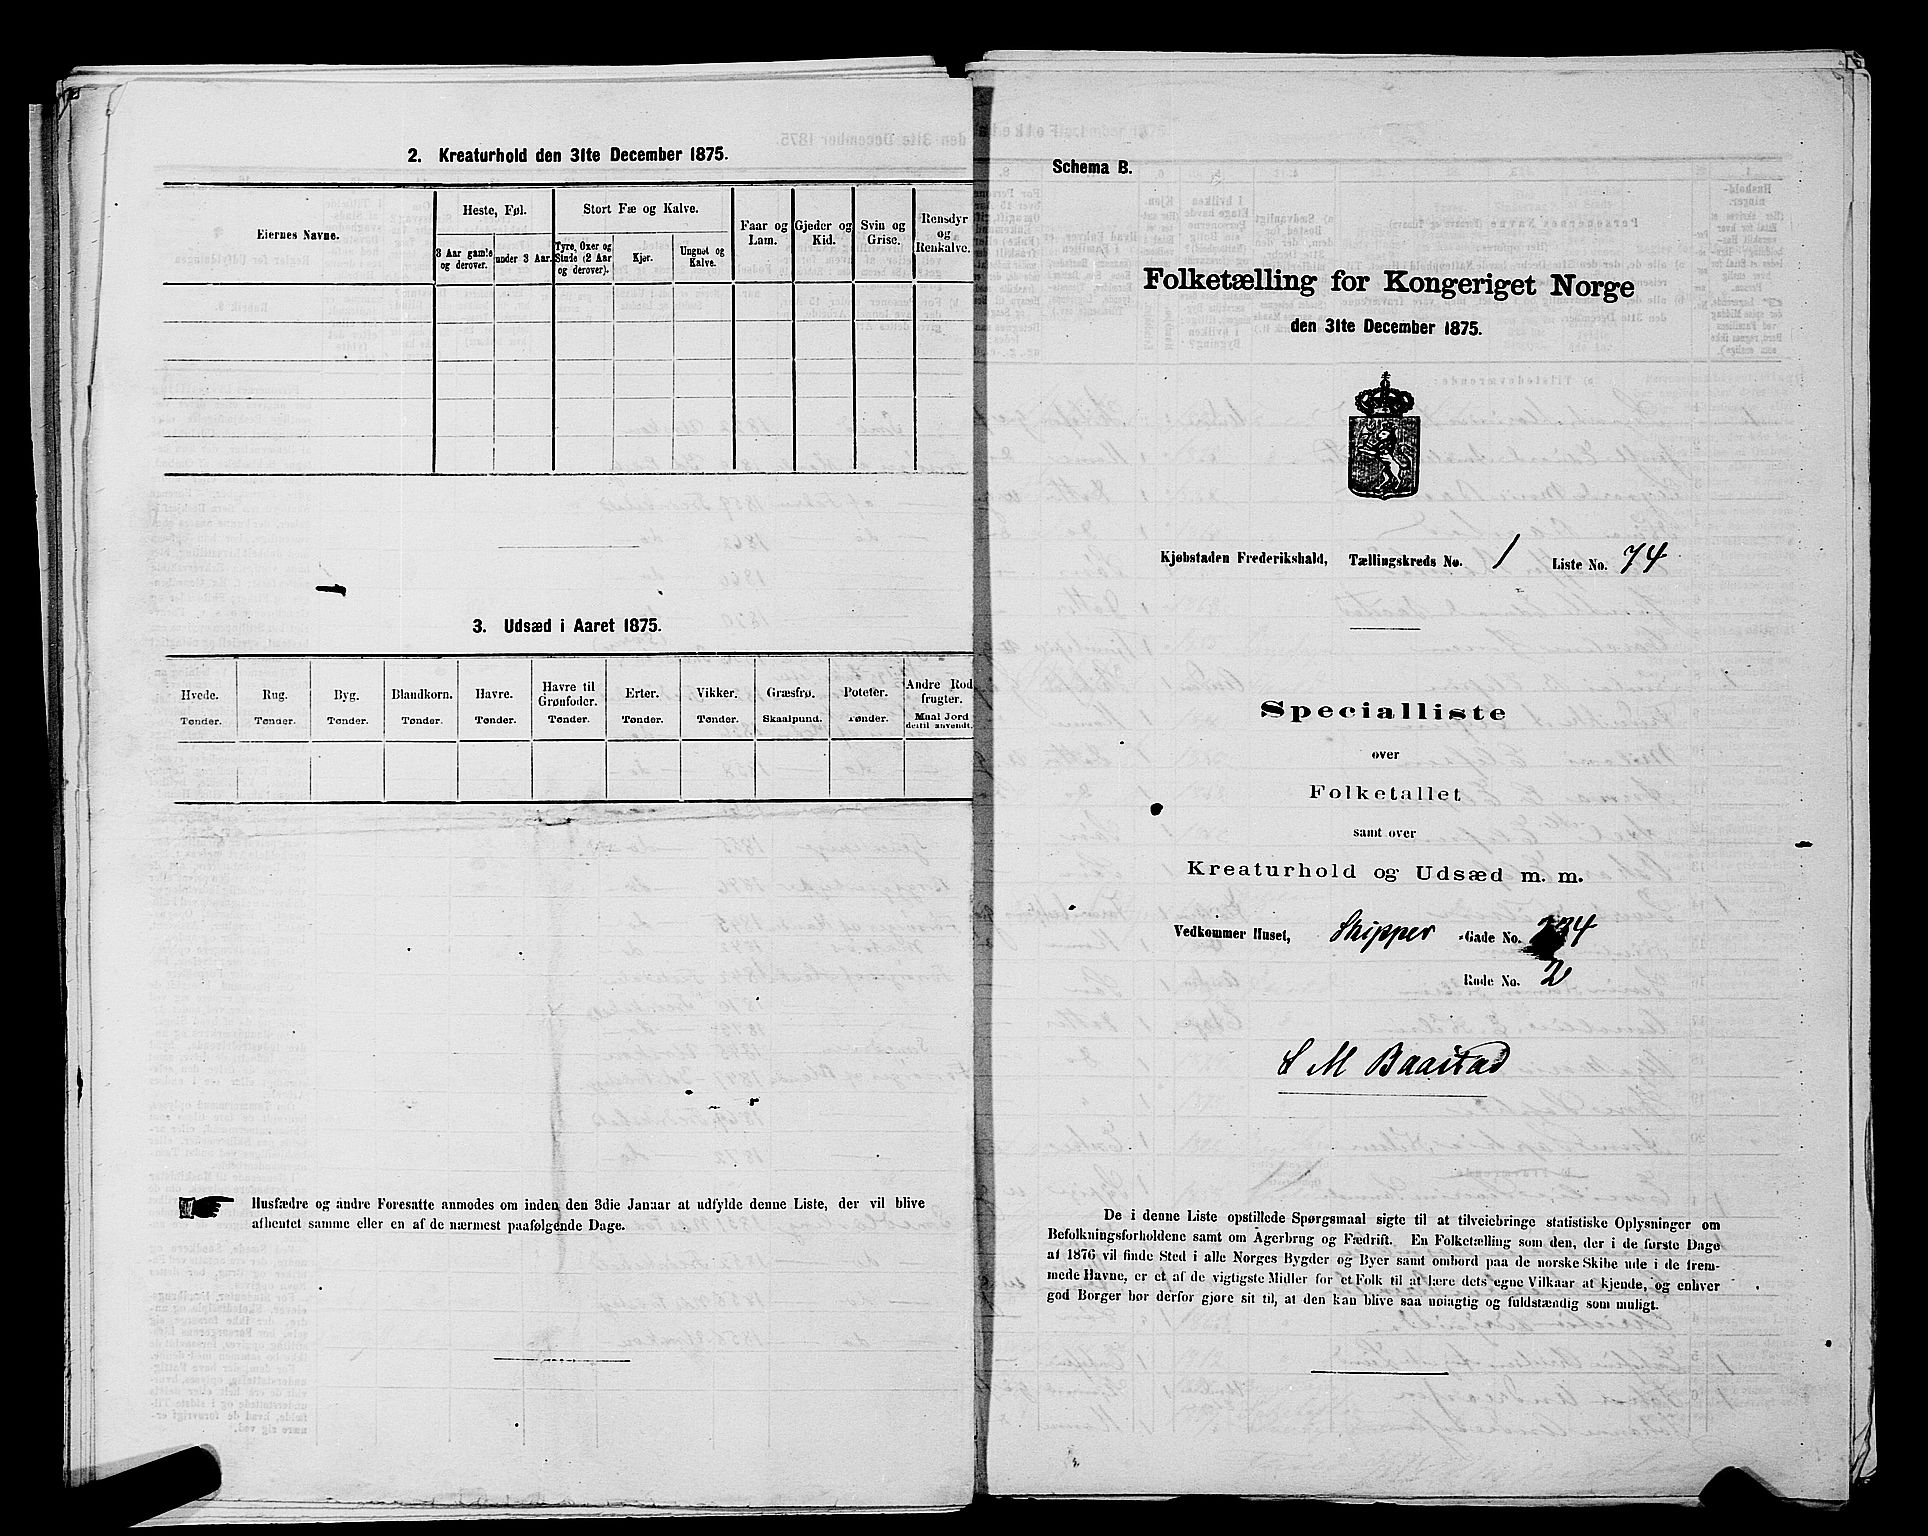 2. Kreaturhold den 31te December 1875.
Eiernes Navne.
Heste, Føl.
3 Aar gamle og derover.
under 3 Aar.
Stort Fæ og Kalve.
Tyre, Oxer og Stude (2 Aar og derover).
Kjør.
Ungnøt og Kalve.
Faar og Lam.
Gjeder og Kid.
Svin og Grise.
Rensdyr og Renkalve.
3. Udsæd i Aaret 1875.
Hvede. Tønder.
Rug. Tønder.
Byg. Tønder.
Blandkorn. Tønder.
Havre. Tønder.
Havre til Grønfoder. Tønder.
Erter. Tønder.
Vikker. Tønder.
Græsfrø. Skaalpund.
Poteter. Tønder.
Andre Rodfrugter. Maal Jord dertil anvendt.
Husfædre og andre Foresatte anmodes om inden den 3die Januar at udfylde denne Liste, der vil blive
afhentet samme eller en af de nærmest paafølgende Dage.
Schema B.
Folketælling for Kongeriget Norge
den 31te December 1875.
Kjøbstaden Frederikshald, Tællingskreds No. 1 Liste No. 74
Specialliste
over
Folketallet
samt over
Kreaturhold og Udsæd m. m.
Vedkommer Huset, Skipper -Gade No. 4
Rode No. 2
S M Baastad
De i denne Liste opstillede Spørgsmaal sigte til at tilveiebringe statistiske Oplysninger om
Befolkningsforholdene samt om Agerbrug og Fædrift. En Folketælling som den, der i de første Dage
af 1876 vil finde Sted i alle Norges Bygder og Byer samt ombord paa de norske Skibe ude i de frem-
mede Havne, er et af de vigtigste Midler for et Folk til at lære dets egne Vilkaar at kjende, og enhver
god Borger bør derfor gjøre sit til, at den kan blive saa nøiagtig og fuldstændig som muligt.